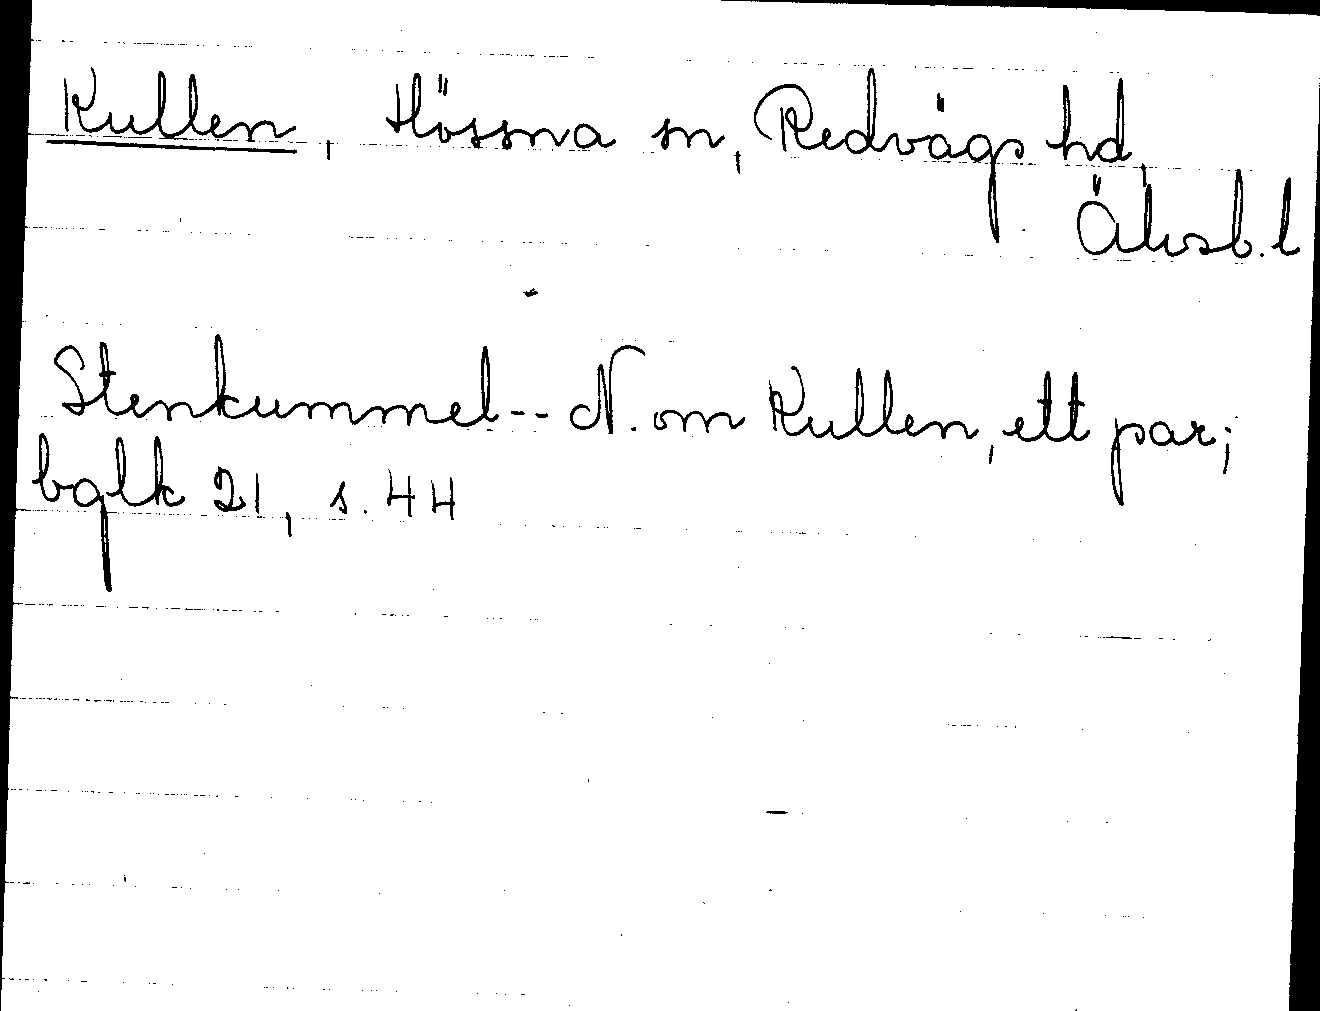 Kullen, Hössna sn, Redvägs hd,
Älvsb. l
Stenkummel-- N. om Kullen, ett par;
bglk 21, s. 44